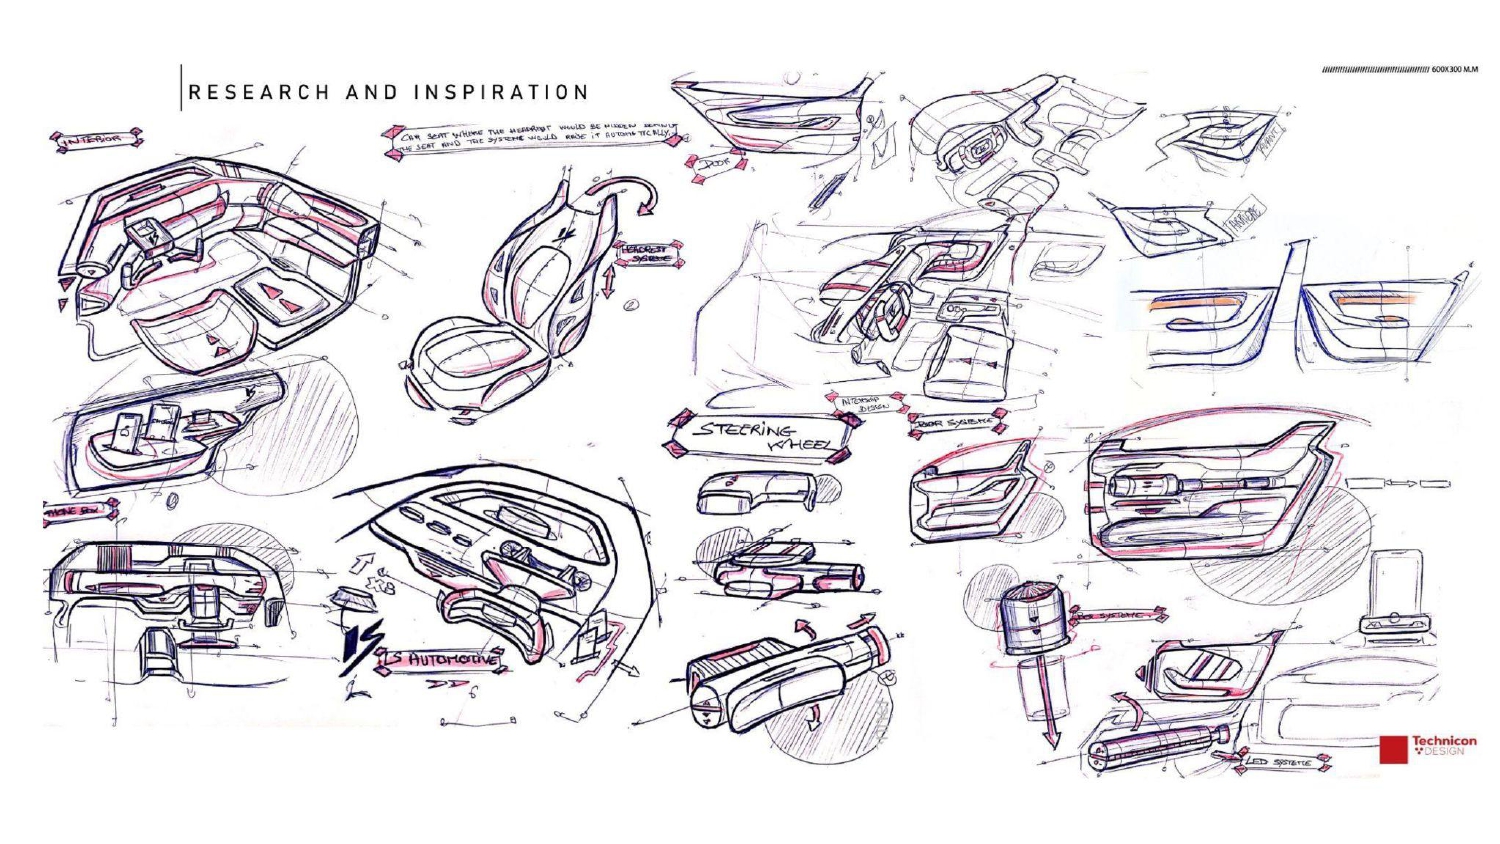 RESEARCH AND INSPIRATION
600X300 M.M
INTERIOR
CAR SEAT WHERE THE HEADREST WOULD BE HIDDEN BEHIND
THE SEAT AND THE SYSTEME WOULD RAISE IT AUTOMATICALLY.
DOOR
HEADREST
SYSTEME
2
INTERIOR
DESIGN
STEERING
WHEEL
DOOR SYSTEME
PHONE BOX
LS AUTOMOTIVE
SYSTEME
LED SYSTEME
Technicon
DESIGN